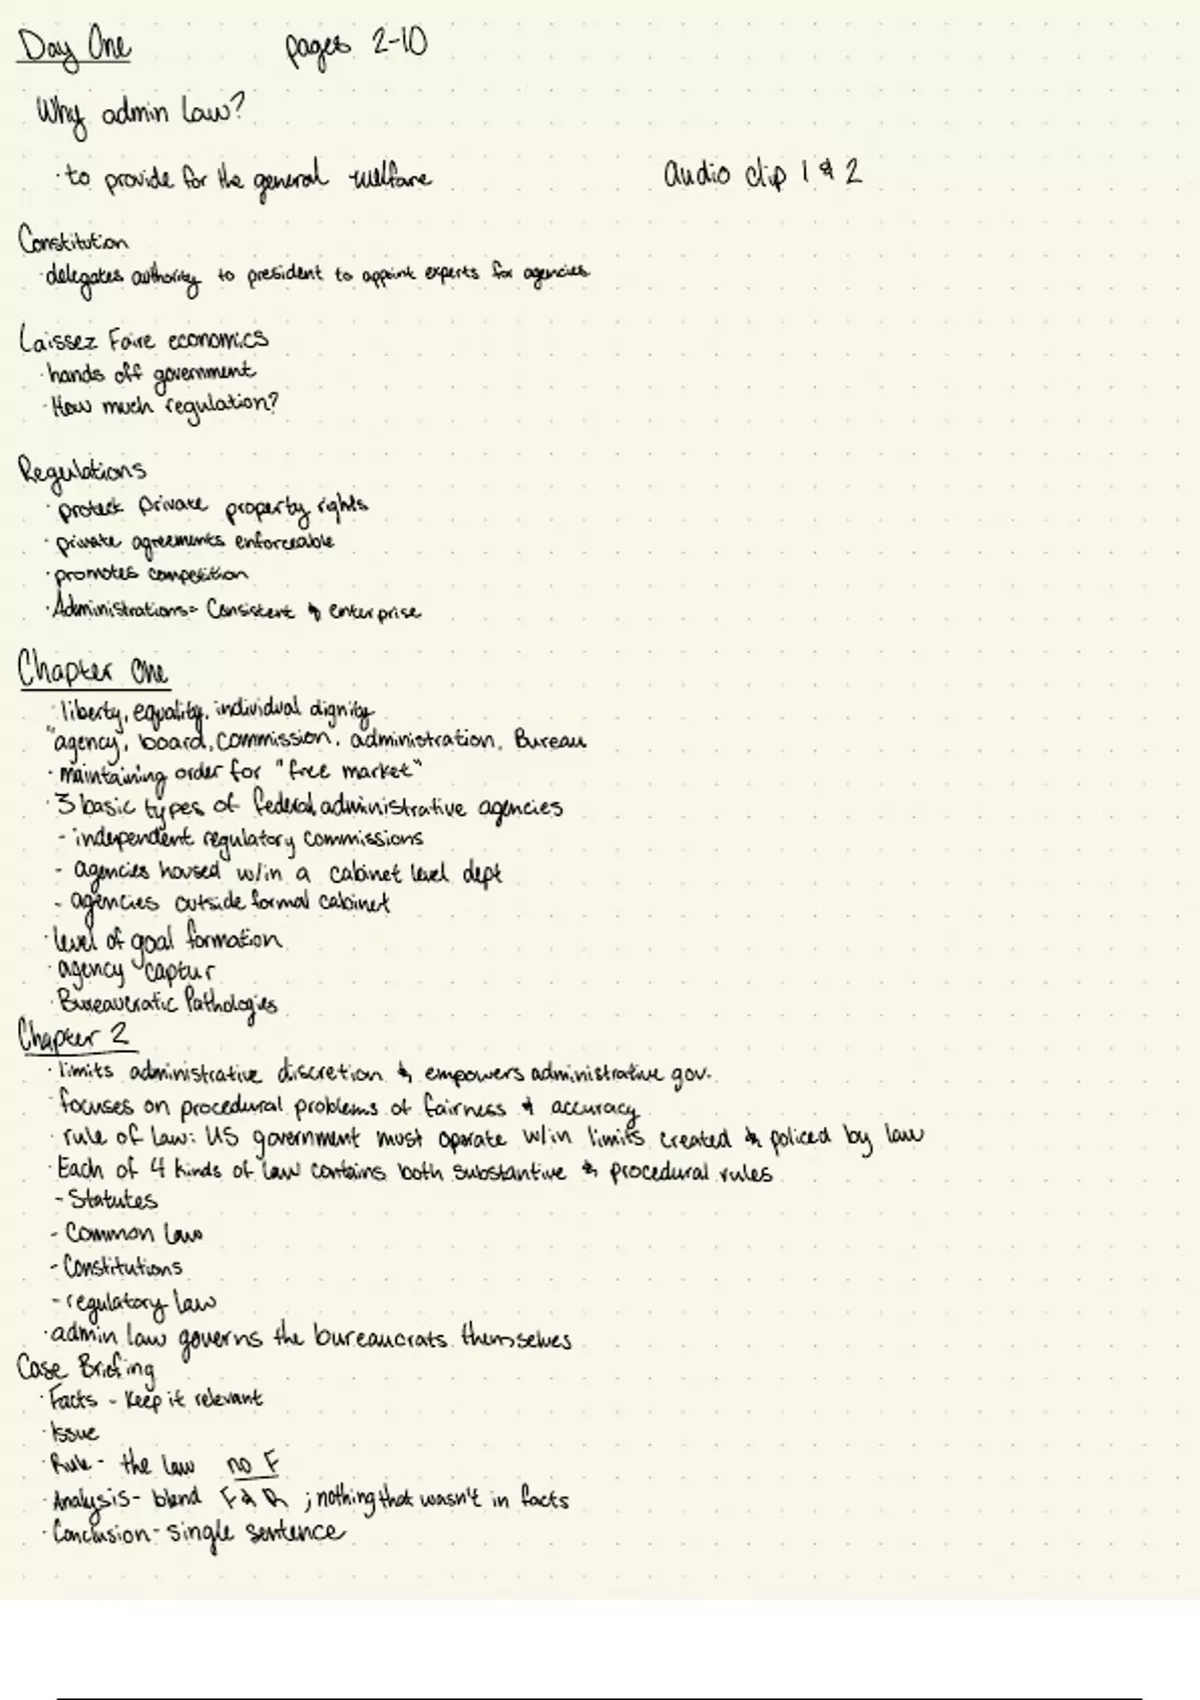 Day One pages 2-10
Why admin law?
· to provide for the general welfare audio clip 1 & 2
Constitution
· delegates authority to president to appoint experts for agencies
Laissez Faire economics
· hands off government
· How much regulation?
Regulations
· protect private property rights
· private agreements enforceable
· promotes competition
· Administrations = Consistent & enterprise
Chapter One
· liberty, equality, individual dignity
"agency, board, commission, administration, Bureau
· maintaining order for "free market"
· 3 basic types of federal administrative agencies
- independent regulatory commissions
- agencies housed w/in a cabinet level dept
- agencies outside formal cabinet
· level of goal formation
· agency captur
· Bureaucratic Pathologies
Chapter 2
· limits administrative discretion & empowers administrative gov.
· focuses on procedural problems of fairness & accuracy
· rule of law: US government must operate w/in limits created & policed by law
· Each of 4 kinds of law contains both substantive & procedural rules
- Statutes
- Common law
- Constitutions
- regulatory law
· admin law governs the bureaucrats themselves
Case Briefing
· Facts - Keep it relevant
· Issue
· Rule - the law no F
· Analysis - blend F & R ; nothing that wasn't in facts
· Conclusion - single sentence